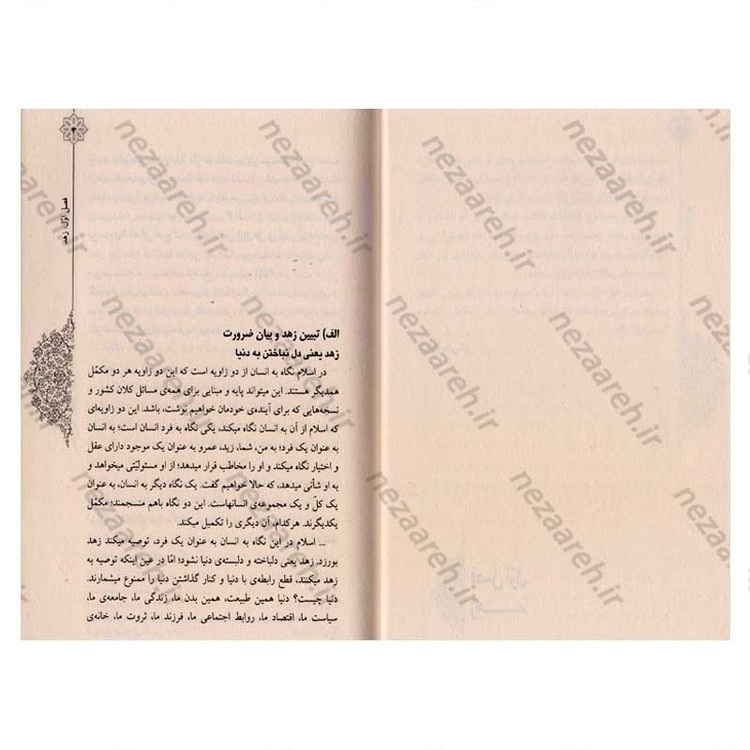 فصل اوّل: زهد
الف) تبیین زهد و بیان ضرورت
زهد یعنی دل نباختن به دنیا
در اسلام نگاه به انسان از دو زاویه است که این دو زاویه هر دو مکمّل
همدیگر هستند. این میتواند پایه و مبنایی برای همه‌ی مسائل کلان کشور و
نسخه‌هایی که برای آینده‌ی خودمان خواهیم نوشت، باشد. این دو زاویه‌ای
که اسلام از آن به انسان نگاه میکند، یکی نگاه به فرد انسان است؛ به انسان
به عنوان یک فرد؛ به من، شما، زید، عمرو به عنوان یک موجود دارای عقل
و اختیار نگاه میکند و او را مخاطب قرار میدهد؛ از او مسئولیّتی میخواهد و
به او شأنی میدهد، که حالا خواهیم گفت. یک نگاه دیگر به انسان، به عنوان
یک کلّ و یک مجموعه‌ی انسانهاست. این دو نگاه باهم منسجمند؛ مکمّل
یکدیگرند. هرکدام، آن دیگری را تکمیل میکند.
... اسلام در این نگاه به انسان به عنوان یک فرد، توصیه میکند زهد
بورزد. زهد یعنی دلباخته و دلبسته‌ی دنیا نشود؛ امّا در عین اینکه توصیه به
زهد میکنند، قطع رابطه‌ی با دنیا و کنار گذاشتن دنیا را ممنوع میشمارند.
دنیا چیست؟ دنیا همین طبیعت، همین بدن ما، زندگی ما، جامعه‌ی ما،
سیاست ما، اقتصاد ما، روابط اجتماعی ما، فرزند ما، ثروت ما، خانه‌ی
nezaareh.ir
nezaareh.ir
nezaareh.ir
nezaareh.ir
nezaareh.ir
nezaareh.ir